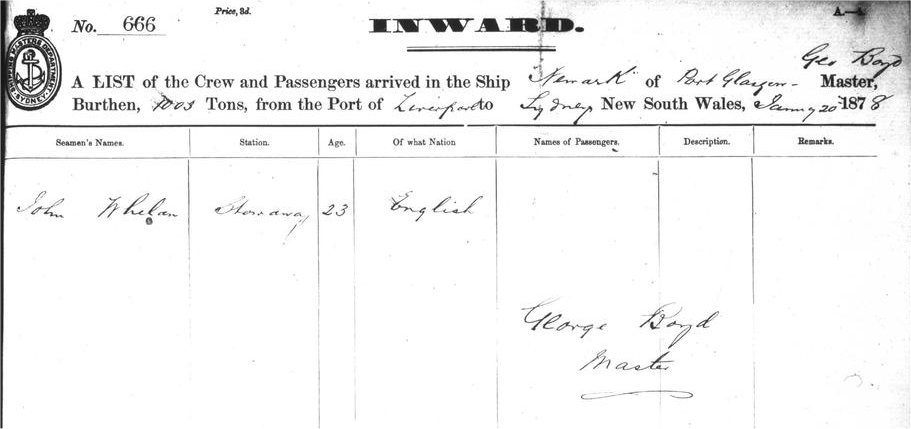 Price, 3d.
No. 666
INWARD.
A—
SHIPPING MASTERS DEPARTMENT SYDNEY
Geo Boyd
A LIST of the Crew and Passengers arrived in the Ship Newark of Port Glasgow Master,
Burthen, Tons, from the Port of Liverpool to Sydney New South Wales, Jany 20 1878
Seamen's Names. Station. Age. Of what Nation Names of Passengers. Description. Remarks.
John Whelan Stowaway 23 English
George Boyd
Master